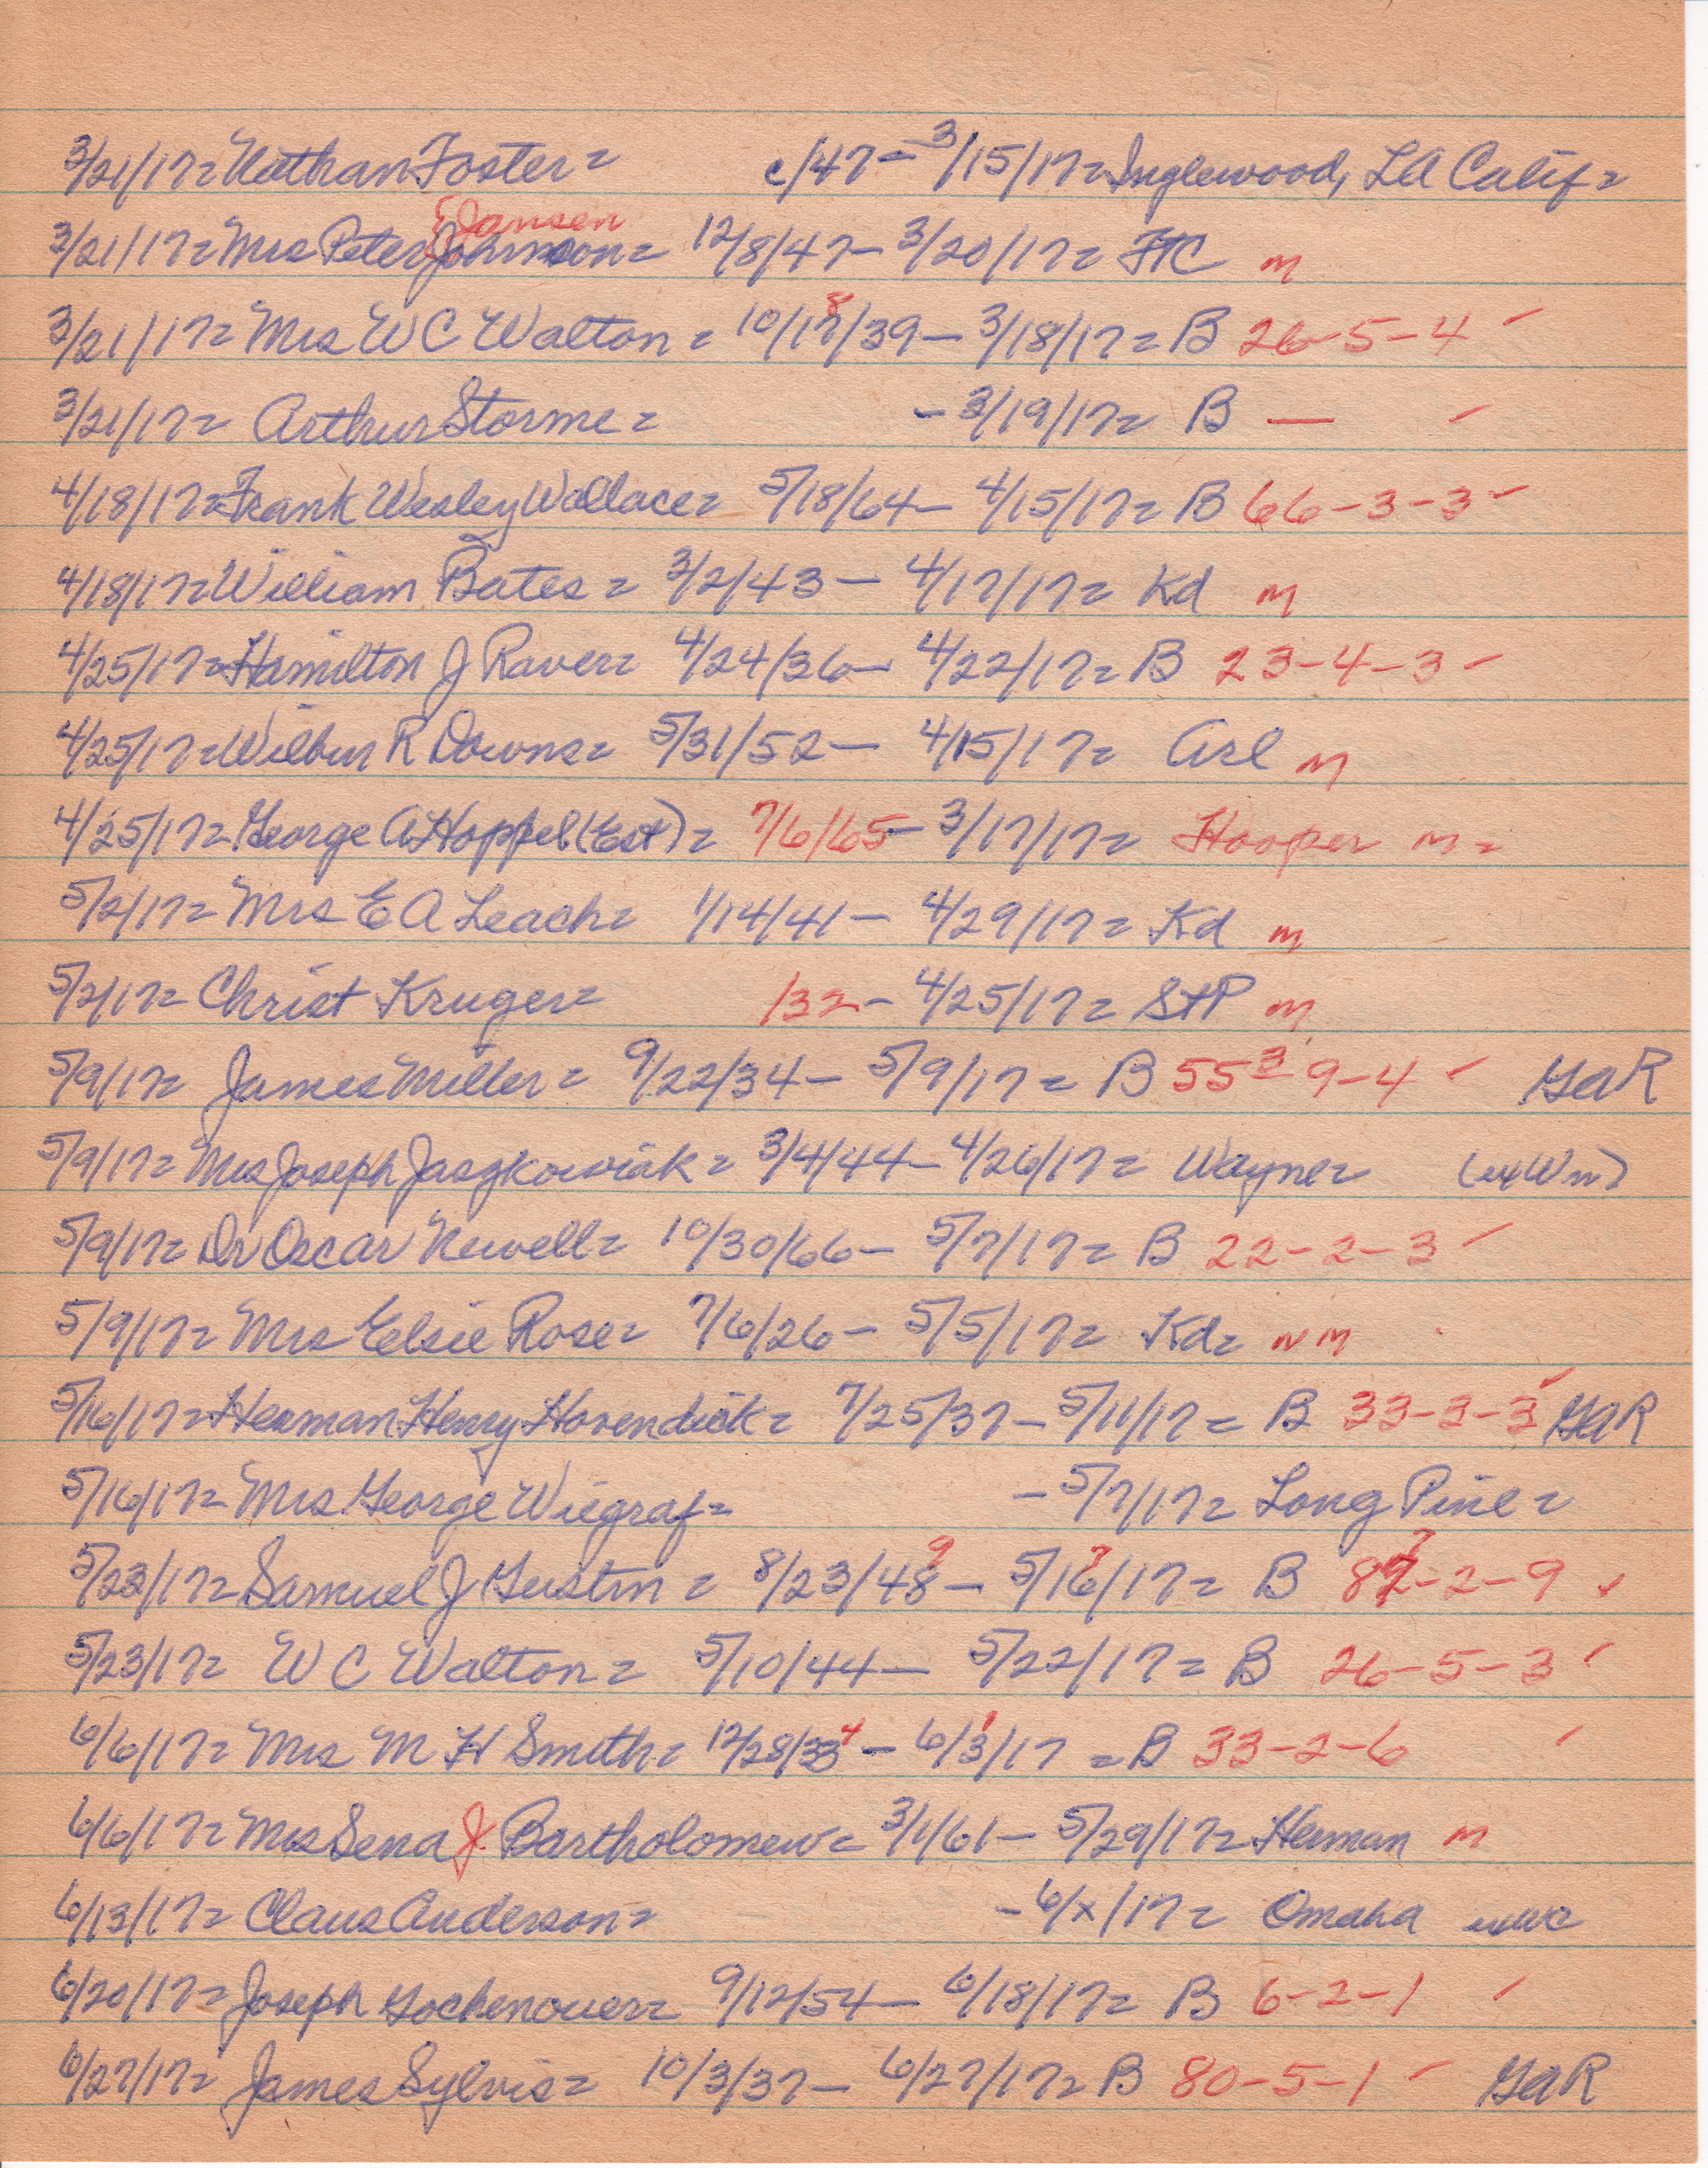 3/21/17= Nathan Foster= c/47- 3/15/17= Inglewood, LA Calif=
3/21/17= Mrs Peter Johnson= {Jansen 12/8/47- 3/20/17= FtC m
3/21/17= Mrs W C Walton= 10/17/39- 8 3/18/17= B 26-5-4 ✓
3/21/17= Arthur Storme= - 3/19/17= B — ✓
4/18/17= Frank Wesley Wallace= 5/18/64- 4/15/17= B 66-3-3 ✓
4/18/17= William Bates= 3/2/43- 4/17/17= Kd m
4/25/17= Hamilton J Raver= 4/24/36- 4/22/17= B 23-4-3 ✓
4/25/17= Wilbur R Downs= 5/31/52- 4/15/17= Arl m
4/25/17= George A Hoppel (Est)= 7/6/65- 3/17/17= Hooper m=
5/2/17= Mrs E A Leach= 1/14/41- 4/29/17= Kd m
5/2/17= Christ Kruger= /32- 4/25/17= StP m
5/9/17= James Miller= 9/22/34- 5/9/17= B 55-9-4 3 ✓ GAR
5/9/17= Mrs Joseph Jaszkowiak= 3/4/44- 4/26/17= Wayne= (ux Wm)
5/9/17= Dr Oscar Newell= 10/30/66- 5/7/17= B 22-2-3 ✓
5/9/17= Mrs Elsie Rose= 7/6/26- 5/5/17= Kd= nm
5/16/17= Herman Henry Hovendick= 7/25/37- 5/11/17= B 33-3-3 ✓ GAR
5/16/17= Mrs George Wiegraf= - 5/7/17= Long Pine=
5/23/17= Samuel J Gustin= 8/23/48- 9 5/16/17= 7 B 82-2-9 7 ✓
5/23/17= W C Walton= 5/10/44- 5/22/17= B 26-5-3 ✓
6/6/17= Mrs M H Smith= 12/28/33- 4 6/3/17= 1 B 33-2-6 ✓
6/6/17= Mrs Sena J. Bartholomew= 3/1/61- 5/29/17= Herman m
6/13/17= Claus Anderson= - 6/x/17= Omaha
6/20/17= Joseph Gochenouer= 9/12/54- 6/18/17= B 6-2-1 ✓
6/27/17= James Sylvis= 10/3/37- 6/27/17= B 80-5-1 ✓ GAR